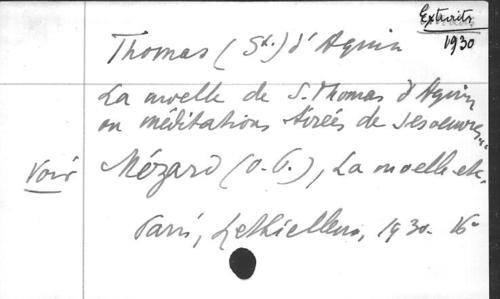 Extraits
1930
Thomas (St.) d'Aquin
La moelle de S. Thomas d'Aquin
ou méditations tirées de ses oeuvres...
Voir Mézard (O.P.), La moelle etc.
Paris, Lethielleux, 1930. 16°